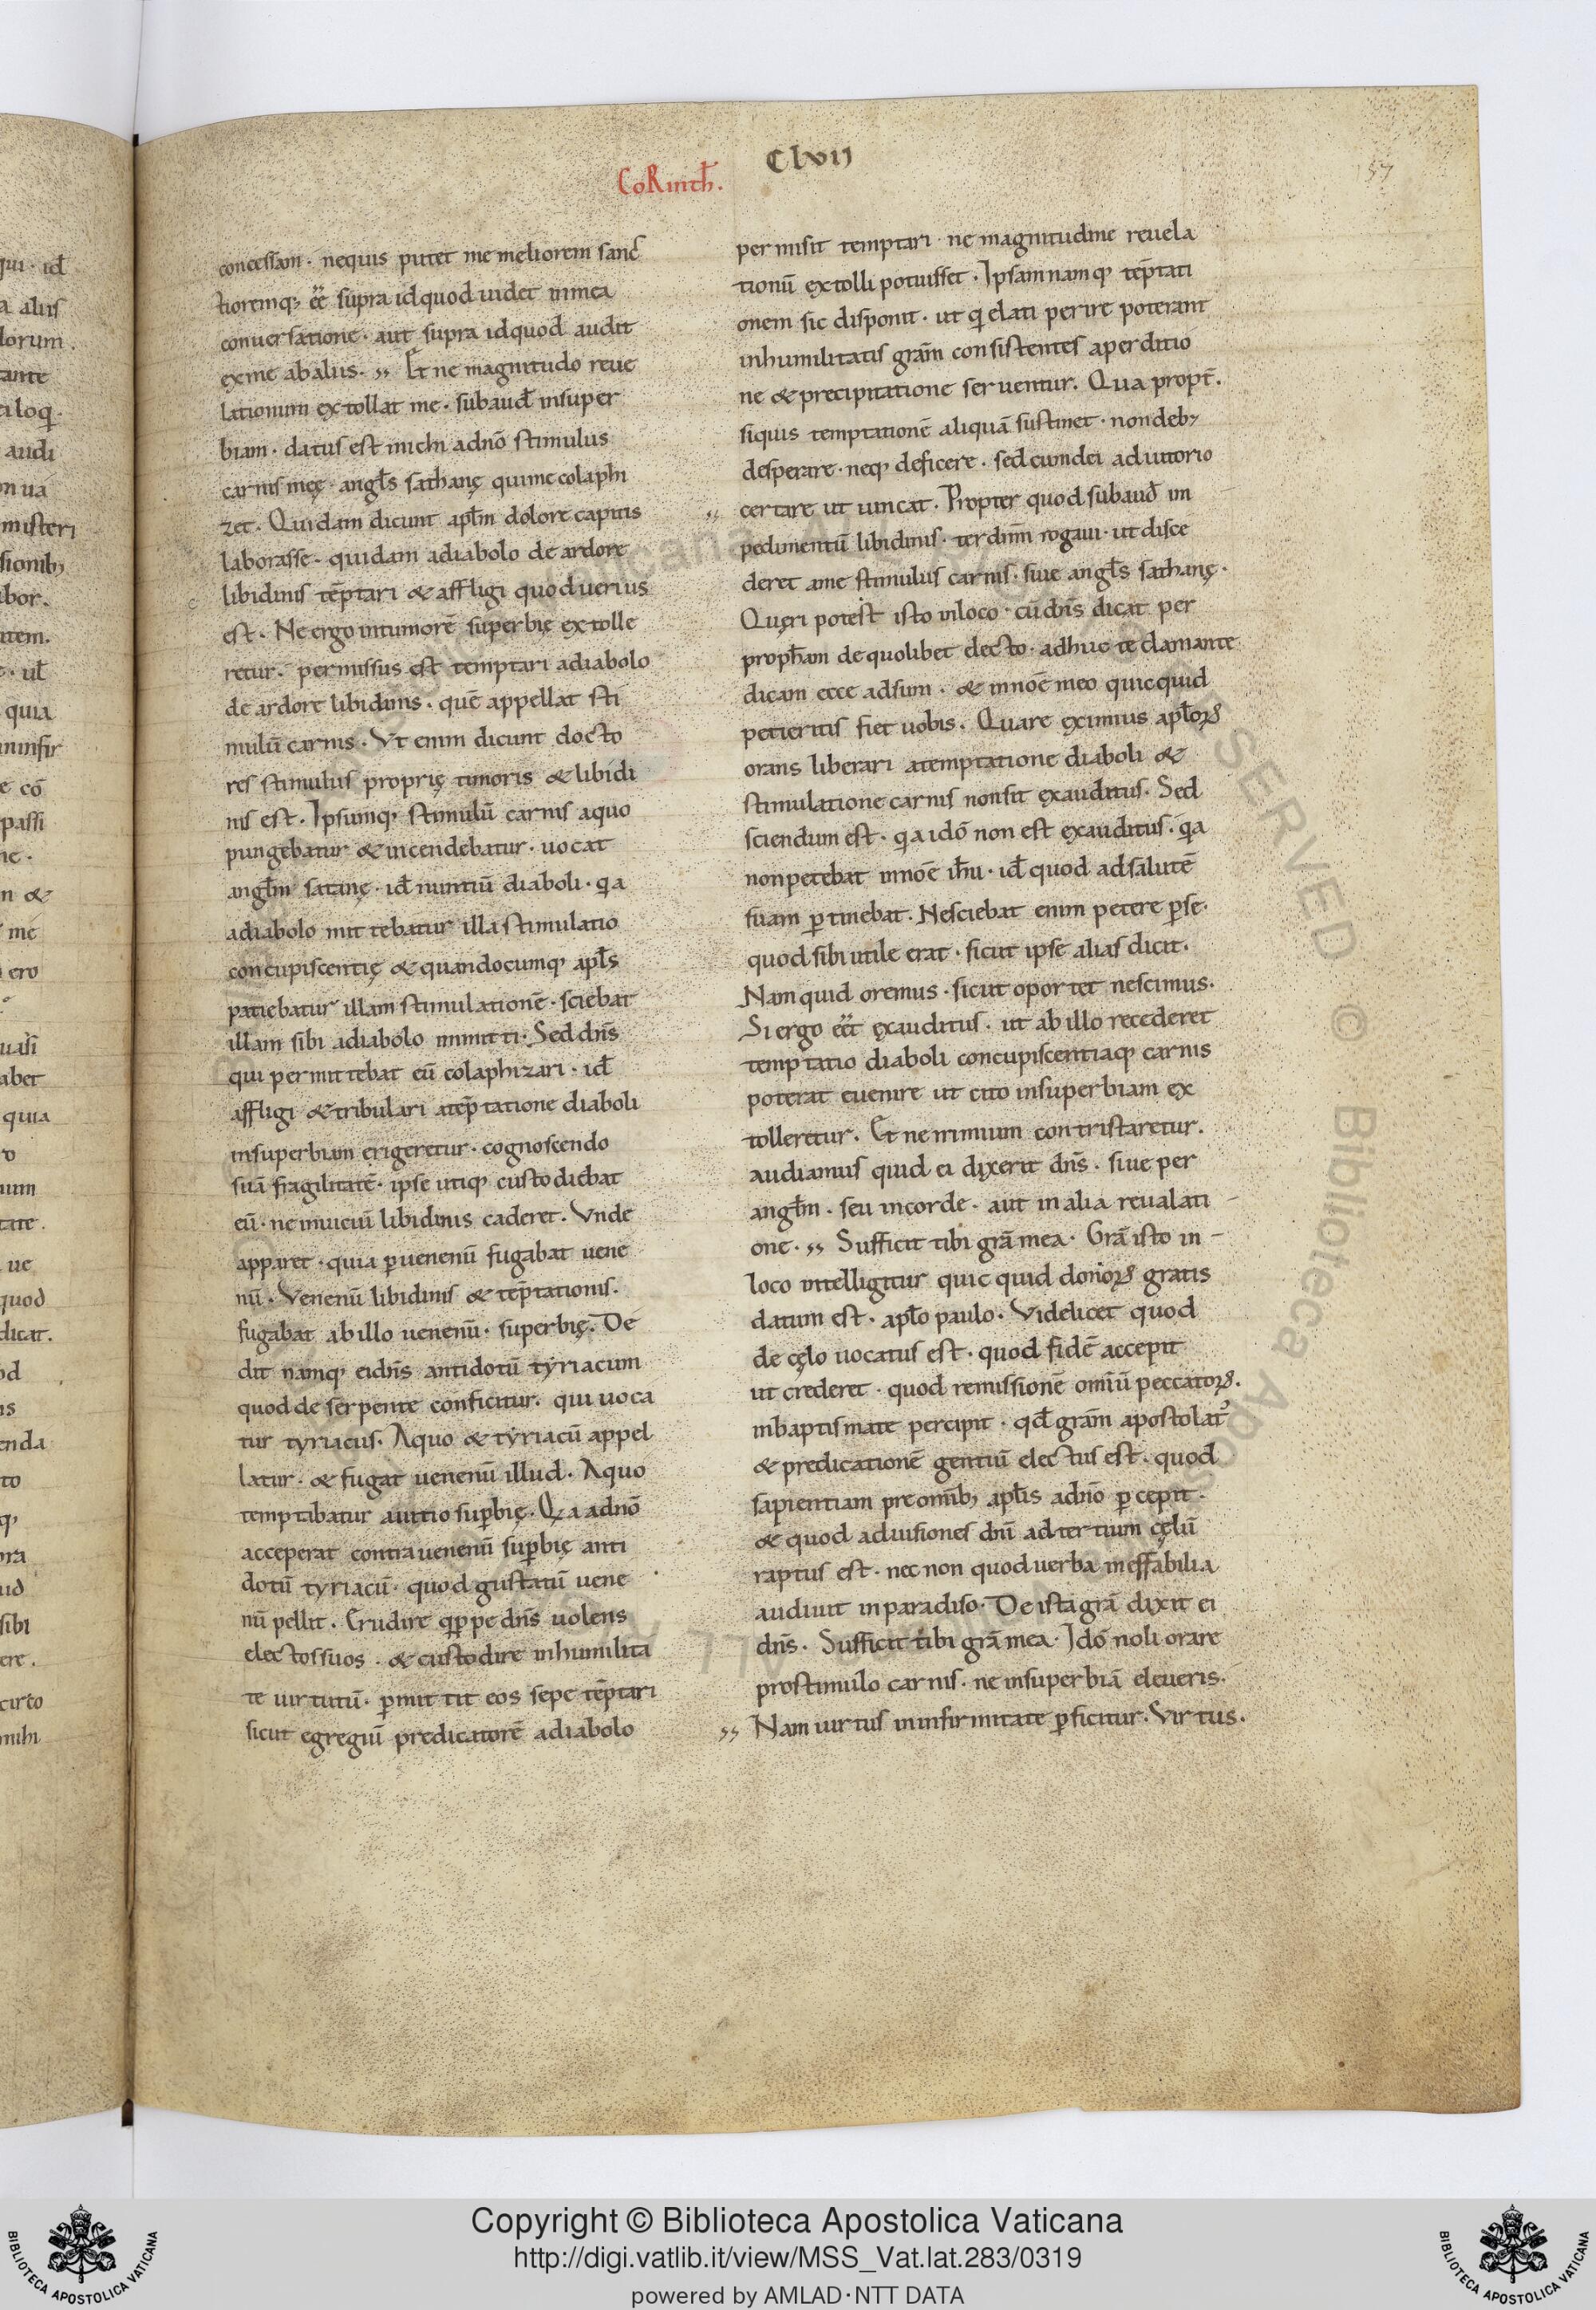 CoRinth̄.
Clvij
57
concessam· nequis putet me meliorem sanc̄
tioremq; eē supra id quod uidet in mea
conuersatione· aut supra id quod audit
ex me ab aliis. ,, Et ne magnitudo reue
lationum extollat me· subaud̄ in super
biam· datus est michi a dn̄o stimulus
carnis meę· angl̄s sathanę qui me colaphi
zet. Quidam dicunt apl̄m dolore capitis
laborasse· quidam a diabolo de ardore
libidinis tēptari & affligi quod uerius
est. Ne ergo in tumorē superbię extolle
retur· permissus est temptari a diabolo
de ardore libidinis· quē appellat sti
mulū carnis. Vt enim dicunt docto
res stimulus proprię timoris & libidi
nis est. Ipsumq; stimulū carnis a quo
pungebatur & incendebatur· uocat
angl̄m satanę· id̄ nuntiū diaboli· qa
a diabolo mittebatur illa stimulatio
concupiscentię & quandocumq; apl̄s
patiebatur illam stimulationē· sciebat
illam sibi a diabolo immitti· Sed dn̄s
qui permittebat eū colaphizari· id̄
affligi & tribulari a tēptatione diaboli
in superbiam erigeretur· cognoscendo
suā fragilitatē· ipse utiq; custodiebat
eū· ne in uiciū libidinis caderet. Vnde
apparet· quia p̱ uenenū fugabat uene
nū. Venenū libidinis & tēptationis.
fugabat ab illo uenenū· superbię. De
dit namq; ei dn̄s antidotū tyriacum
quod de serpente conficitur. qui uoca
tur tyriacus. A quo & tyriacū appel
latur· & fugat uenenū illud. A quo
temptabatur a uitio sup̱bię. Qa a dn̄o
acceperat contra uenenū sup̱bię anti
dotū tyriacū· quod gustatū uene
nū pellit. Erudire qppe dn̄s uolens
electos suos· & custodire in humilita
te uirtutū· p̱mittit eos sepe tēptari
sicut egregiū predicatorē a diabolo
permisit temptari· ne magnitudine reuela
tionū extolli potuisset. Ipsam namq; tēptati
onem sic disponit· ut qi elati perire poterant
in humilitatis grām consistentes a perditio
ne & precipitatione seruentur. Qua propt̄.
siquis temptationē aliquā sustinet· non deb;
desperare· neq; deficere· sed cum dei adiutorio
,, certare ut uincat. Propter quod subaud̄ in
pedimentū libidinis· ter dnm̄ rogaui· ut disce
deret a me stimulus carnis· siue angl̄s sathanę·
Quęri potest isto in loco· cū dn̄s dicat per
proph̄am de quolibet electo· adhuc te clamante
dicam ecce adsum· & in noē meo quicquid
petieritis fiet uobis. Quare eximius apl̄oꝝ
orans liberari a temptatione diaboli &
stimulatione carnis non sit exauditus. Sed
sciendum est· qa idō non est exauditus· qa
non petebat in noē ih̄u· id̄ quod ad salutē
suam p̱tinebat. Nesciebat enim petere p̱ se·
quod sibi utile erat· sicut ipse alias dicit.
Nam quid oremus· sicut oportet nescimus.
Si ergo eēt exauditus· ut ab illo recederet
temptatio diaboli concupiscentiaq; carnis
poterat euenire ut cito in superbiam ex
tolleretur. Et ne nimium contristaretur.
audiamus quid ei dixerit dn̄s· siue per
angl̄m· seu in corde· aut in alia reualati
one. ,, Sufficit tibi grā mea. Grā isto in
loco intelligitur quicquid donoꝝ gratis
datum est· apl̄o paulo. Videlicet quod
de cęlo uocatus est· quod fidē accepit
ut crederet· quod remissionē om̄iū peccatoꝝ.
in baptismate percipit· qd̄ grām apostolat᾽
& predicationē gentiū electus est· quod
sapientiam pre omīb; apl̄is a dn̄o p̱cepit·
& quod ad uisiones dn̄i ad tertium cęlū
raptus est· nec non quod uerba ineffabilia
audiuit in paradiso. De ista grā dixit ei
dn̄s. Sufficit tibi grā mea. Idō noli orare
pro stimulo carnis· ne in superbiā eleueris.
,, Nam uirtus in infirmitate p̱ficitur. Virtus.
Copyright © Biblioteca Apostolica Vaticana
http://digi.vatlib.it/view/MSS_Vat.lat.283/0319
powered by AMLAD·NTT DATA
BIBLIOTECA APOSTOLICA VATICANA
BIBLIOTECA APOSTOLICA VATICANA